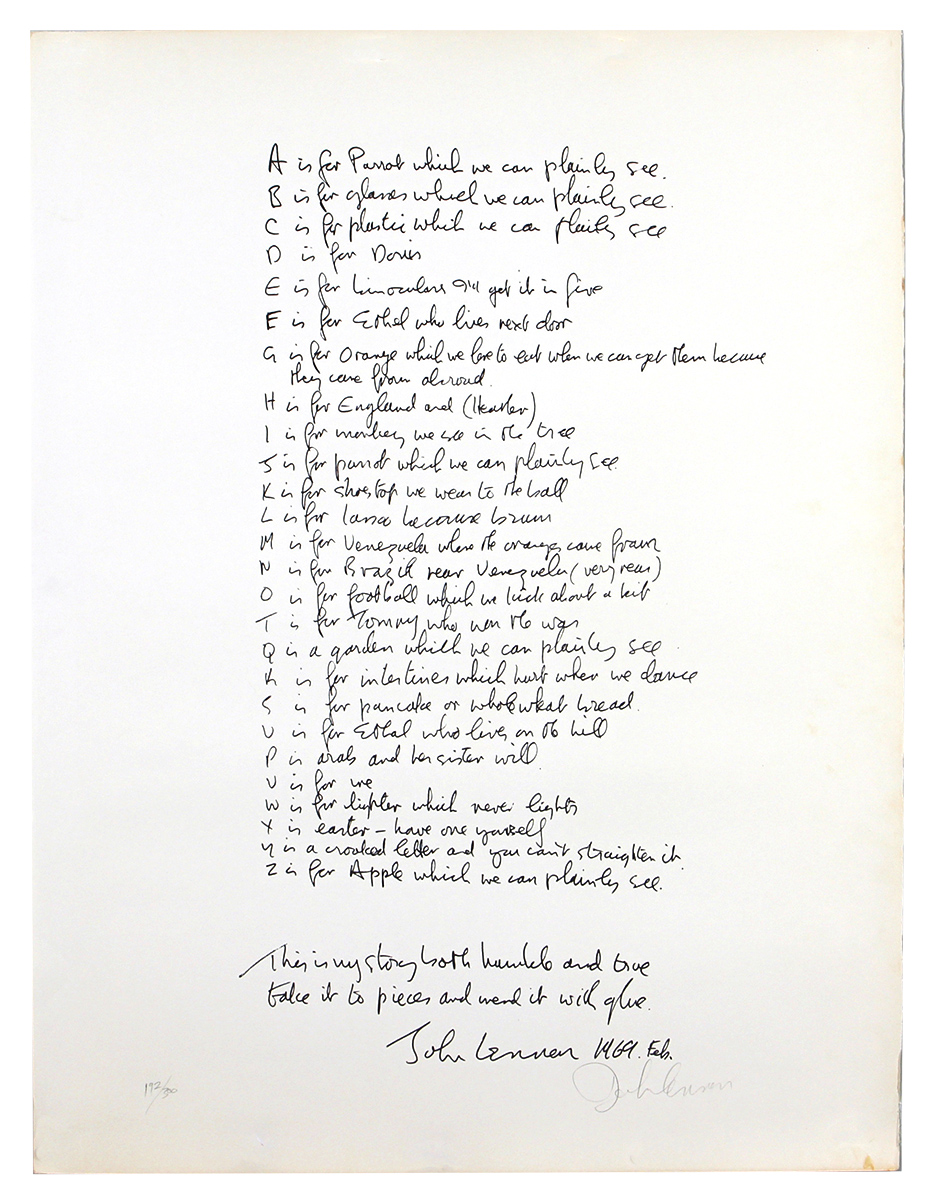 A is for Parrot which we can plainly see.
B is for glasses which we can plainly see.
C is for plastic which we can plainly see
D is for Doris
E is for binoculars I'll get it in five
F is for Ethel who lives next door
G is for Orange which we love to eat when we can get them because
they come from abroad.
H is for England and (Heather)
I is for monkey we see in the tree
J is for parrot which we can plainly see
K is for shoetop we wear to the ball
L is for lanso because brum
M is for Venezuela where the oranges come from
N is for Brazil near Venezuela (very near)
O is for football which we kick about a bit
T is for Tommy who won the war
Q is a garden which we can plainly see
R is for intestines which hurt when we dance
S is for pancake or wholewheat bread.
U is for Ethel who lives on the hill
P is arab and her sister will
V is for me
W is for lighter which never lights
X is easter – have one yourself
Y is a crooked letter and you can't straighten it
Z is for Apple which we can plainly see.
This is my story both humble and true
take it to pieces and mend it with glue.
John Lennon 1969. Feb.
John Lennon